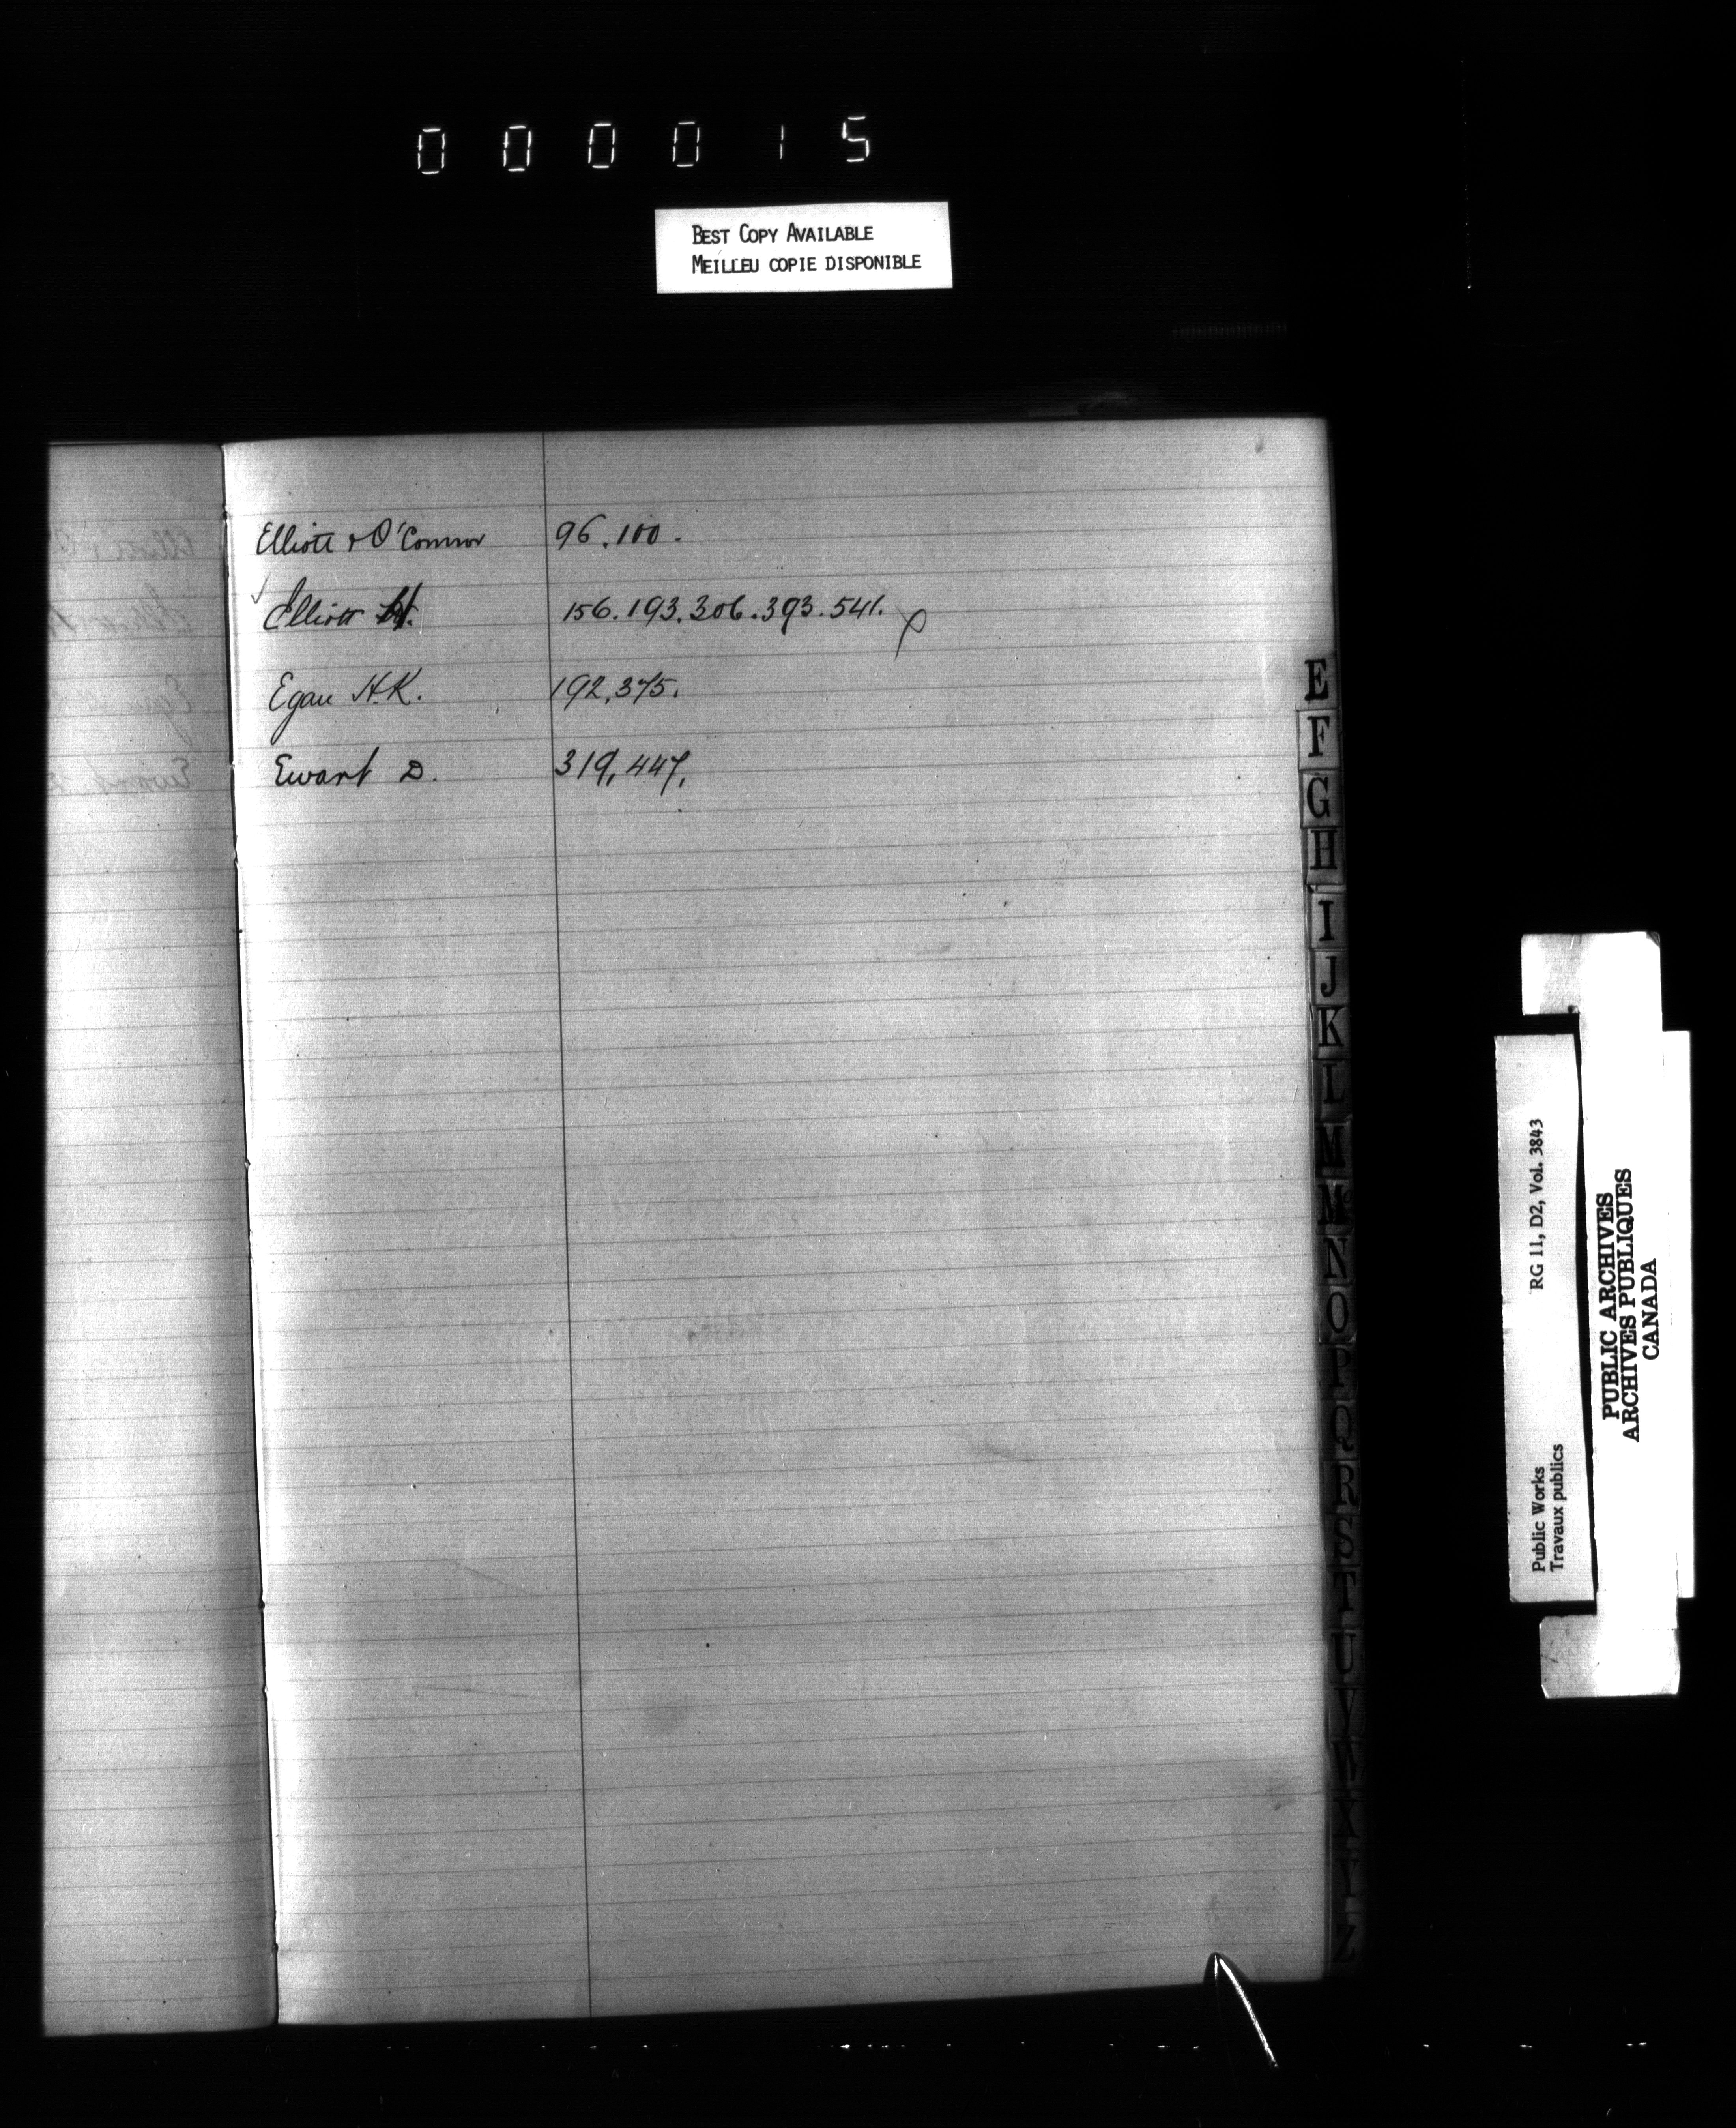 000015
BEST COPY AVAILABLE
MEILLEU COPIE DISPONIBLE
Elliott & O'Connor 96.100.
Elliott 156.193.306.393.541.
Egan H.K. 192,375.
Ewart D. 319,447,
E
F
G
H
I
J
K
L
M
Mc
N
O
P
Q
R
S
T
U
V
W
X
Y
Z
Public Works RG 11, D2, Vol. 3843
Travaux publics
PUBLIC ARCHIVES
ARCHIVES PUBLIQUES
CANADA